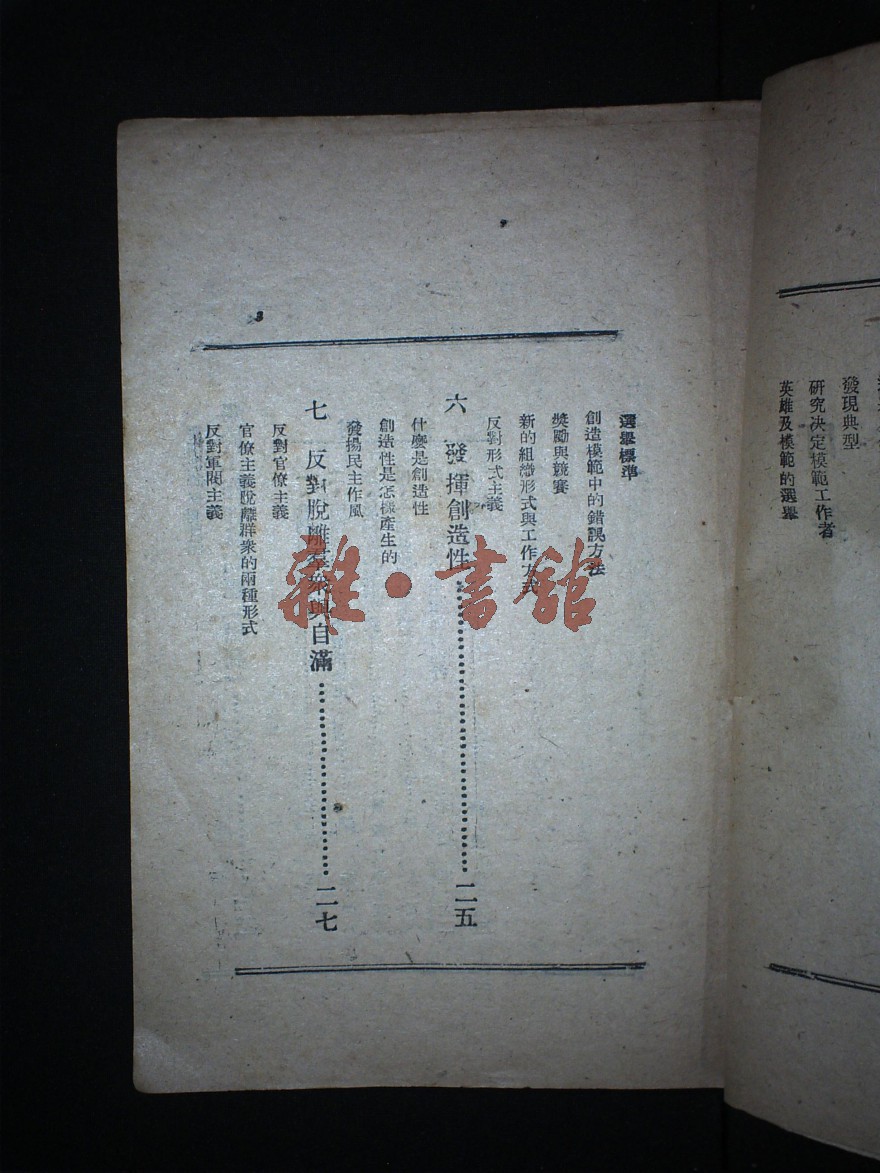 發現典型
研究决定模範工作者
英雄及模範的選舉
選舉標準
創造模範中的錯誤方法
獎勵與競賽
新的組織形式與工作方式
反對形式主義
六 發揮創造性…………二五
什麼是創造性
創造性是怎樣產生的
發揚民主作風
七 反對脫離羣衆與自滿…………二七
反對官僚主義
官僚主義脫離群衆的兩種形式
反對軍閥主義
雜·書館